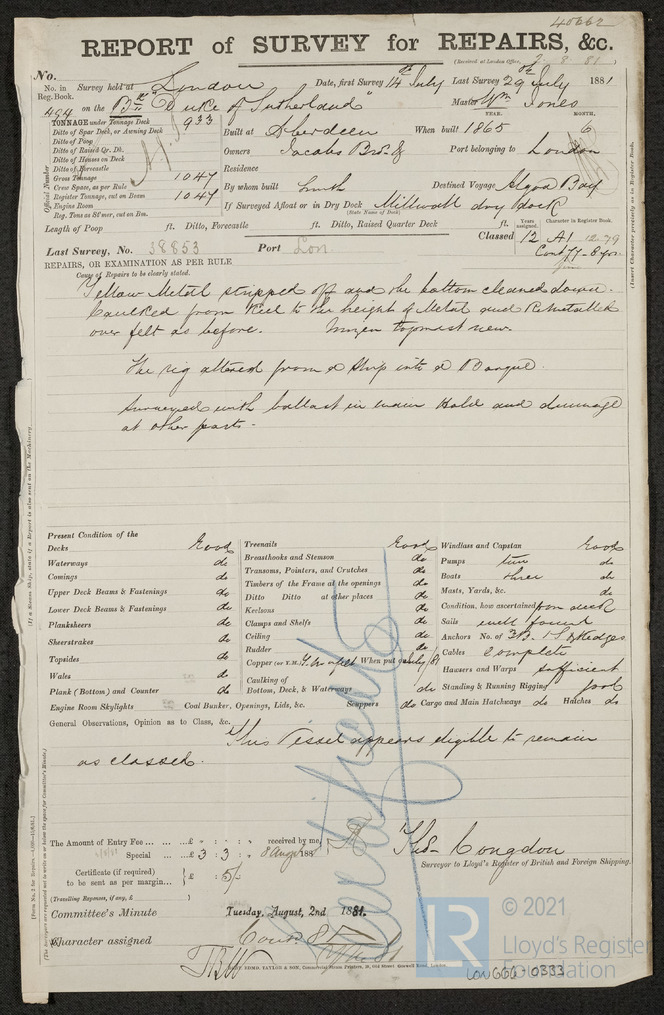 40662
REPORT of SURVEY for REPAIRS, &c.
(Received at London Office, 2. 8. 81)
No.
No. in Reg. Book.
Survey held at London Date, first Survey 14th July Last Survey 29th July 1881
494 on the Bqe "Duke of Sutherland" Master Wm Jones
TONNAGE under Tonnage Deck 933
Ditto of Spar Deck, or Awning Deck
Ditto of Poop
Ditto of Raised Qr. Dk.
Ditto of Houses on Deck
Ditto of Forecastle
Gross Tonnage 1047
Crew Space, as per Rule
Register Tonnage, cut on Beam 1047
Engine Room
Reg. Tons as St'mer, cut on Bm.
Official Number
YEAR. MONTH.
Built at Aberdeen When built 1865 6
Owners Jacobs Bros & Port belonging to London
Residence
By whom built Smith Destined Voyage Algoa Bay
If Surveyed Afloat or in Dry Dock Millwall dry dock
(State Name of Dock)
Length of Poop ft. Ditto, Forecastle ft. Ditto, Raised Quarter Deck ft.
Years assigned. Character in Register Book.
Classed 12 A1 12.79
Cont 77-8 yrs
Last Survey, No. 38853 Port Lon.
REPAIRS, OR EXAMINATION AS PER RULE
Cause of Repairs to be clearly stated.
Yellow Metal stripped off and the bottom cleaned down.
Caulked from Keel to the height of Metal and Remetalled
over felt as before. Mizen topmast new.
The rig altered from a Ship into a Barque.
Surveyed with ballast in main Hold and dunnage
at other parts.
(Insert Character precisely as in Register Book.
Present Condition of the
Decks Good
Waterways do
Comings do
Upper Deck Beams & Fastenings do
Lower Deck Beams & Fastenings do
Planksheers do
Sheerstrakes do
Topsides do
Wales do
Plank (Bottom) and Counter do
Engine Room Skylights
Treenails Good
Breasthooks and Stemson do
Transoms, Pointers, and Crutches do
Timbers of the Frame at the openings do
Ditto Ditto at other places do
Keelsons do
Clamps and Shelfs do
Ceiling do
Rudder do
Copper (or Y.M.) Y.M on felt When put on July 81
Caulking of
Bottom, Deck, & Waterways do
Coal Bunker, Openings, Lids, &c. Scuppers do
Windlass and Capstan Good
Pumps two do
Boats three do
Masts, Yards, &c. do
Condition, how ascertained from deck
Sails well found
Anchors No. of 3B. 1S. 2Kedges
Cables Complete
Hawsers and Warps sufficient
Standing & Running Rigging good
Cargo and Main Hatchways do Hatches do
General Observations, Opinion as to Class, &c.
This Vessel appears eligible to remain
as classed.
The Amount of Entry Fee £ : : received by me,
Special £ 3 : 3 : 8 Augt 1881
Certificate (if required)
to be sent as per margin £ : 5/-
(Travelling Expenses, if any, £ )
Thos Congdon
Surveyor to Lloyd's Register of British and Foreign Shipping.
Committee's Minute Tuesday, August, 2nd 1881.
Character assigned
LR
© 2021
Lloyd's Register
Foundation
LON666-0333